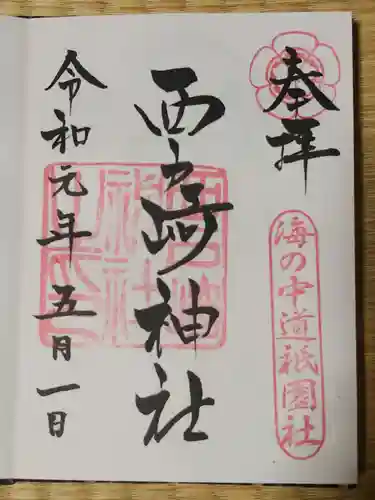 奉拝
海の中道祇園社
西戸崎神社
令和元年五月一日